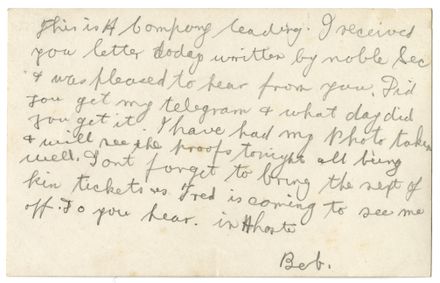 This is A Company leading. I received
you letter today written by noble Sec
& was pleased to hear from you. Did
you get my telegram & what day did
you get it. I have had my Photo taken
& will see the proofs tonight all being
well. Dont forget to bring the rest of
kin tickets as Fred is coming to see me
off. Do you hear. in Haste
Bob.